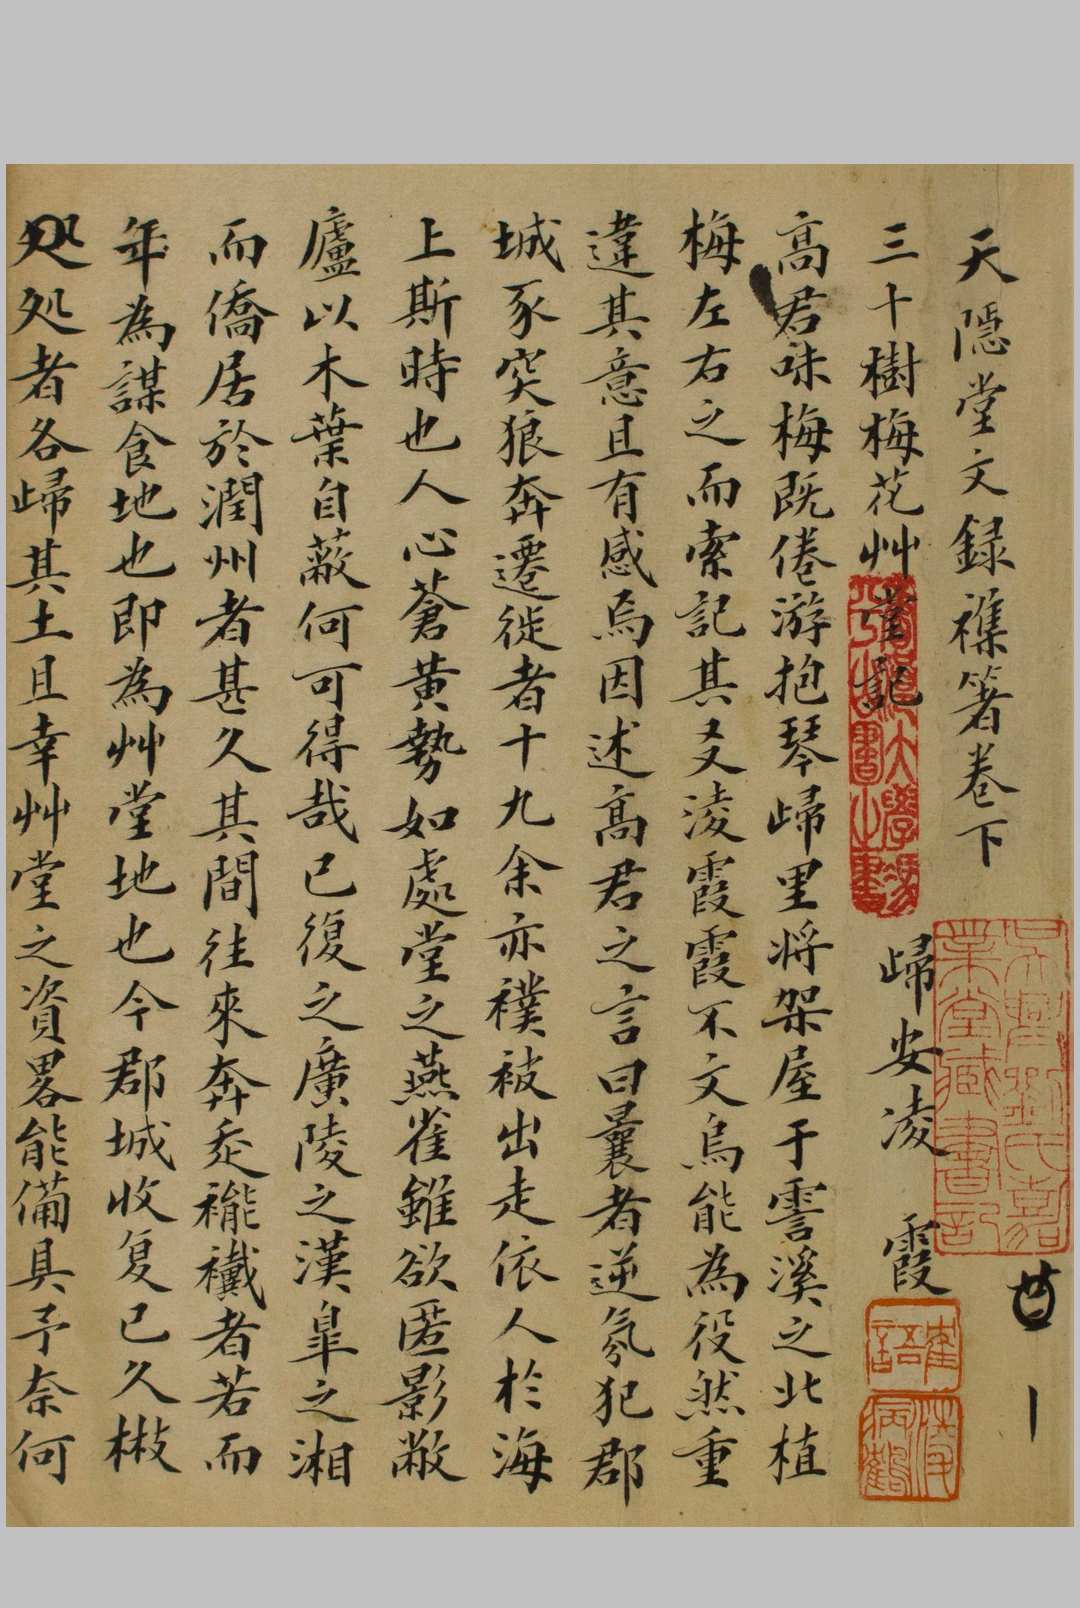 天隱堂文録襍箸卷下
三十樹梅花艸堂記
歸安淩霞
高君味梅既倦游抱琴歸里將架屋于霅溪之北植
梅左右之而索記其叐淩霞霞不文烏能為役然重
違其意且有感焉因述高君之言曰曩者逆氛犯郡
城豕突狼奔遷徙者十九余亦襆被出走依人於海
上斯時也人心蒼黃勢如處堂之燕雀雖欲匿影敝
廬以木葉自蔽何可得哉已復之廣陵之漢皐之湘
而僑居於潤州者甚久其間往來奔走褦襶者若而
年為謀食地也即為艸堂地也今郡城收复已久㪚
処処者各歸其土且幸艸堂之資畧能備具予奈何
吳興劉氏嘉業堂藏書記